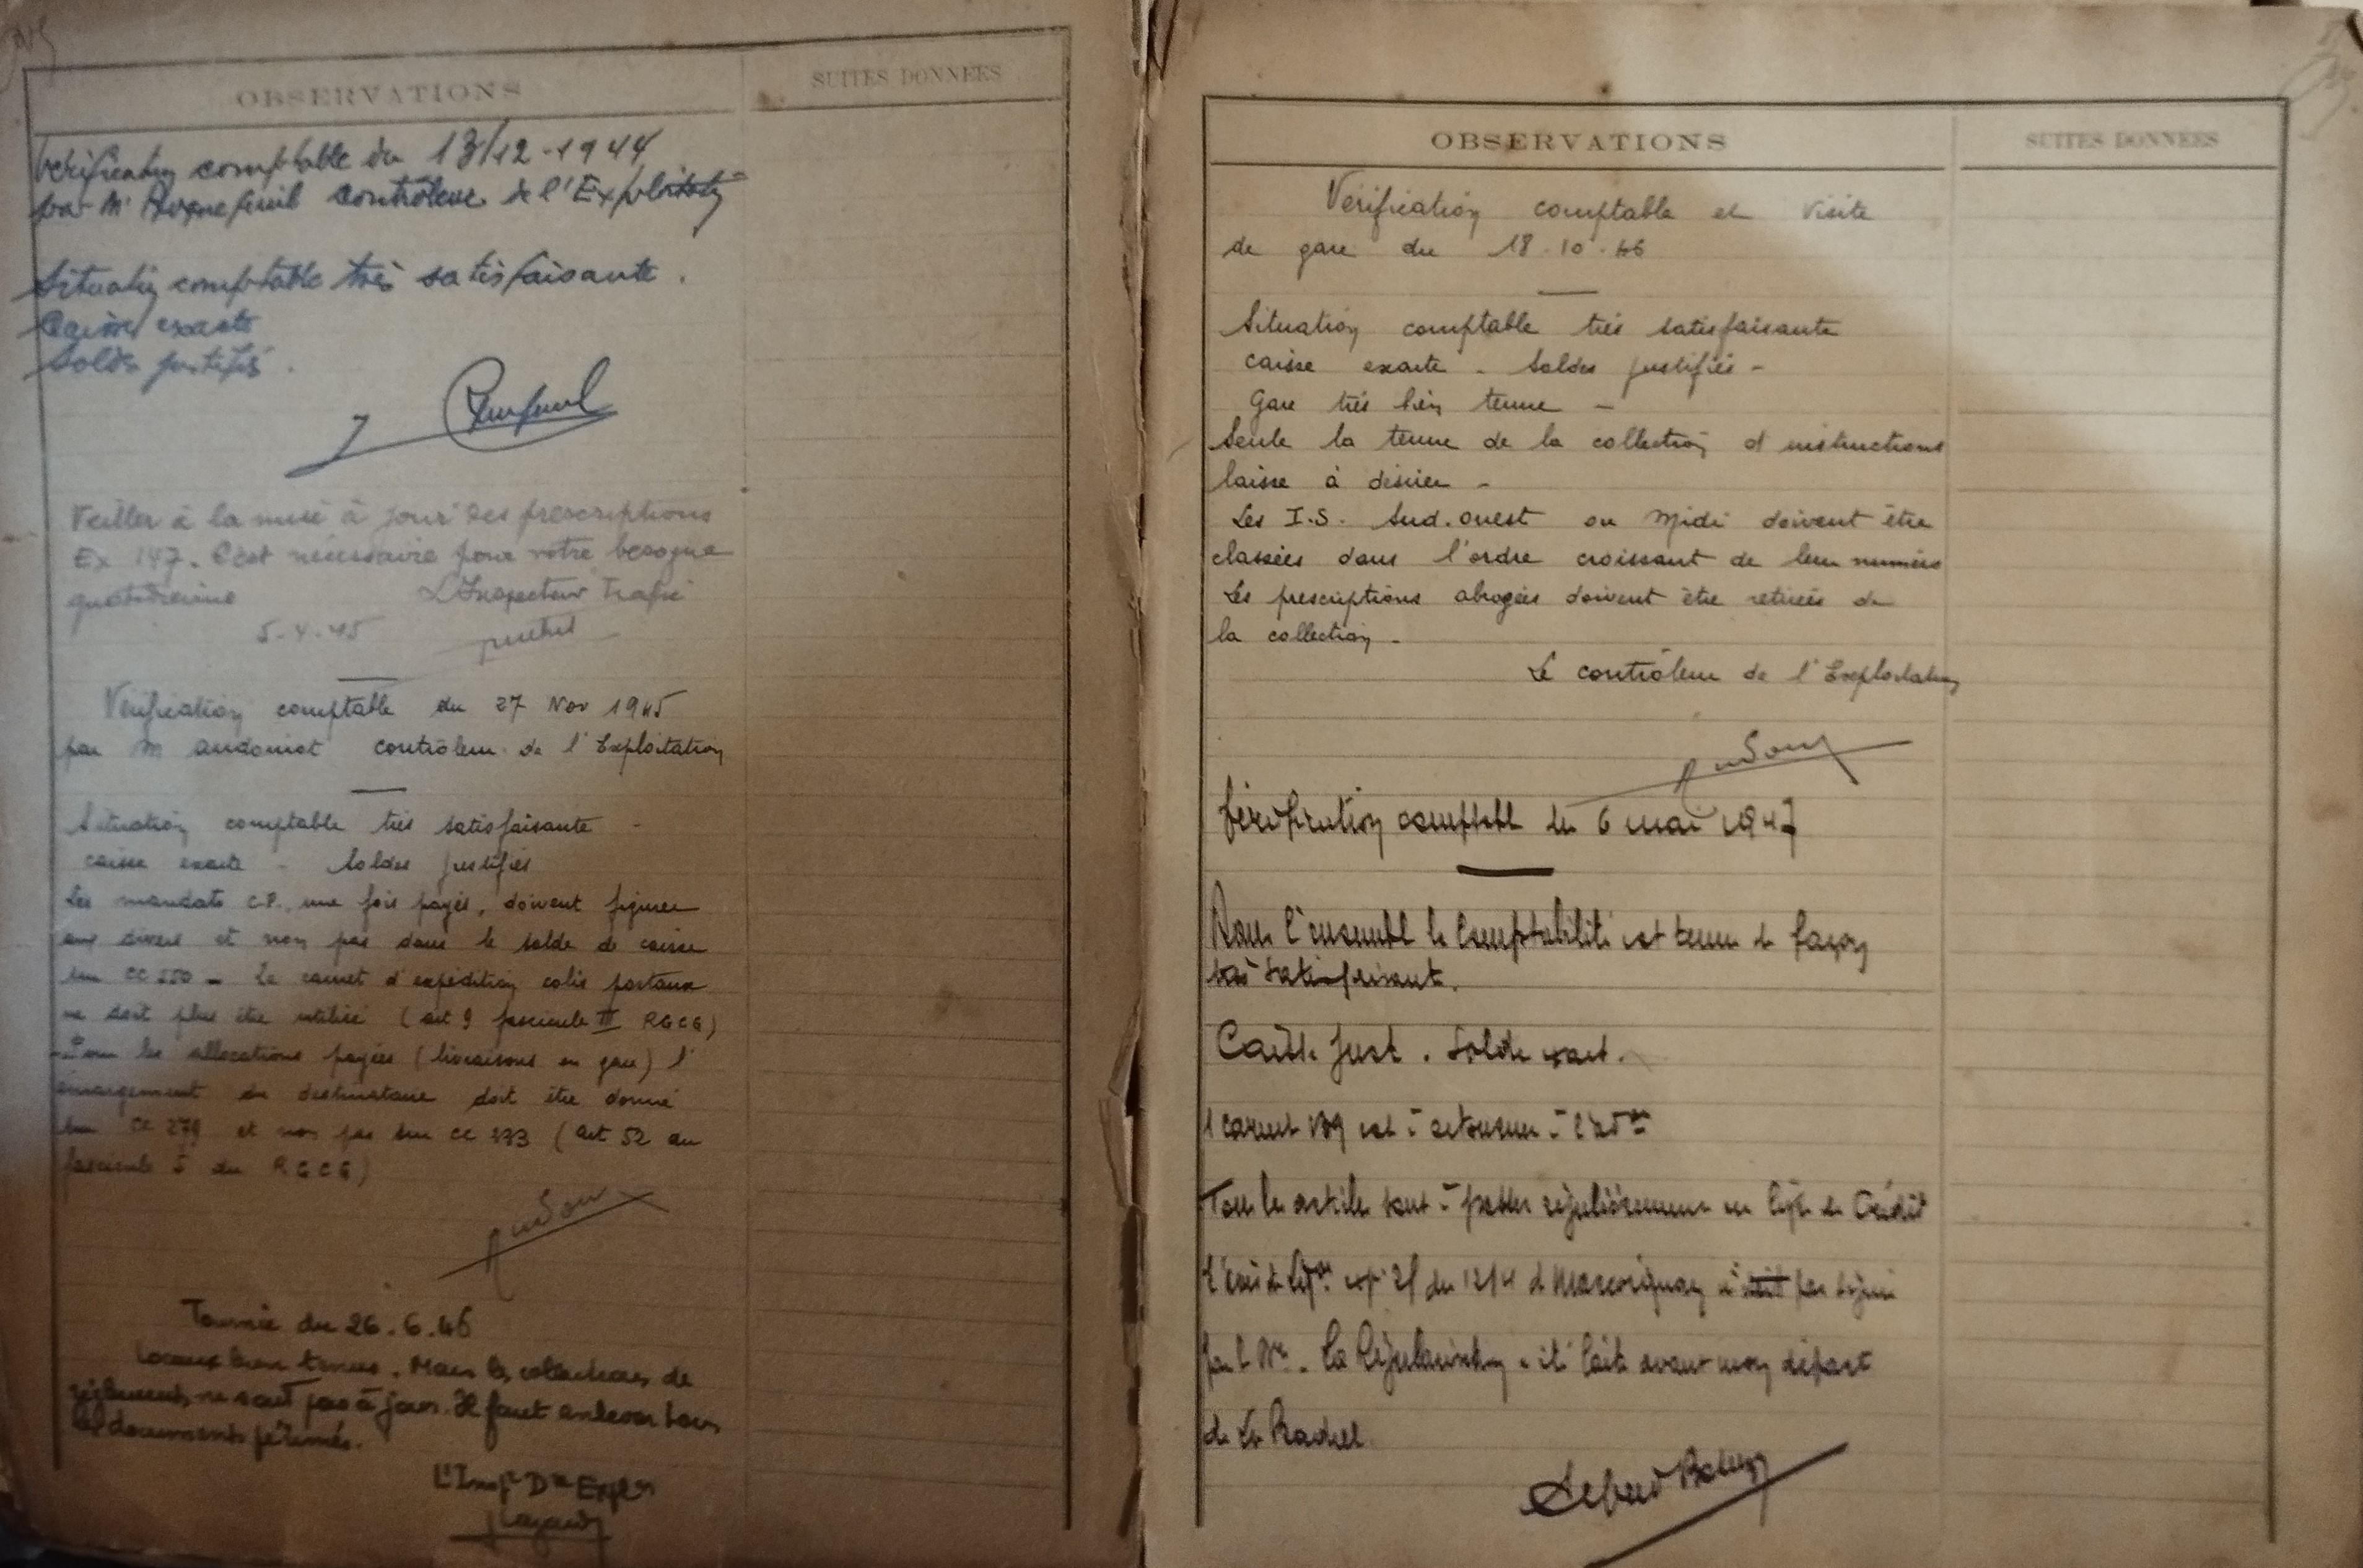 OBSERVATIONS
SUITES DONNÉES
Vérification comptable du 13/12-1944
par Mr Roquefeuil Contrôleur de l'Exploitation
Situation comptable très satisfaisante.
Caisse exacte
Soldes justifiés.
Veiller à la mise à jour des prescriptions
Ex 147. C'est nécessaire pour votre besogne
quotidienne L'Inspecteur trafic
5-4-45
Vérification comptable du 27 Nov 1945
par M contrôleur de l'Exploitation
Situation comptable très satisfaisante -
caisse exacte - Soldes justifiés
Les mandats C.P., une fois payés, doivent figurer
aux divers et non pas dans le solde de caisse
sur CC 250 - Le carnet d'expédition colis postaux
ne doit plus être utilisé (art 9 fascicule III RGCG)
Pour les allocations payées (livraisons en gare) l'
émargement du destinataire doit être donné
sur CC et non pas sur CC (Art 52 du
fascicule I du RGCG)
Tournée du 26.6.46
Locaux bien tenus. Mais les collections de
règlements ne sont pas à jour. Il faut enlever tous
les documents périmés.
L'Inspr Dre Expln
OBSERVATIONS
SUITES DONNÉES
Vérification comptable et visite
de gare du 18.10.46
Situation comptable très satisfaisante
caisse exacte - Soldes justifiés -
Gare très bien tenue -
Seule la tenue de la collection d'instructions
laisse à désirer -
Les I.S. Sud.Ouest ou Midi doivent être
classées dans l'ordre croissant de leur numéro
Les prescriptions abrogées doivent être retirées de
la collection -
Le contrôleur de l'Exploitation
Vérification comptable du 6 mai 1947
Dans l'ensemble la Comptabilité est tenue de façon
très satisfaisante.
Caisse juste. Solde exact.
1 carnet est à retourner à
Tous les articles sont à passer régulièrement en de Crédit
du 12/4 de par
La Régularisation a été faite avant mon départ
de